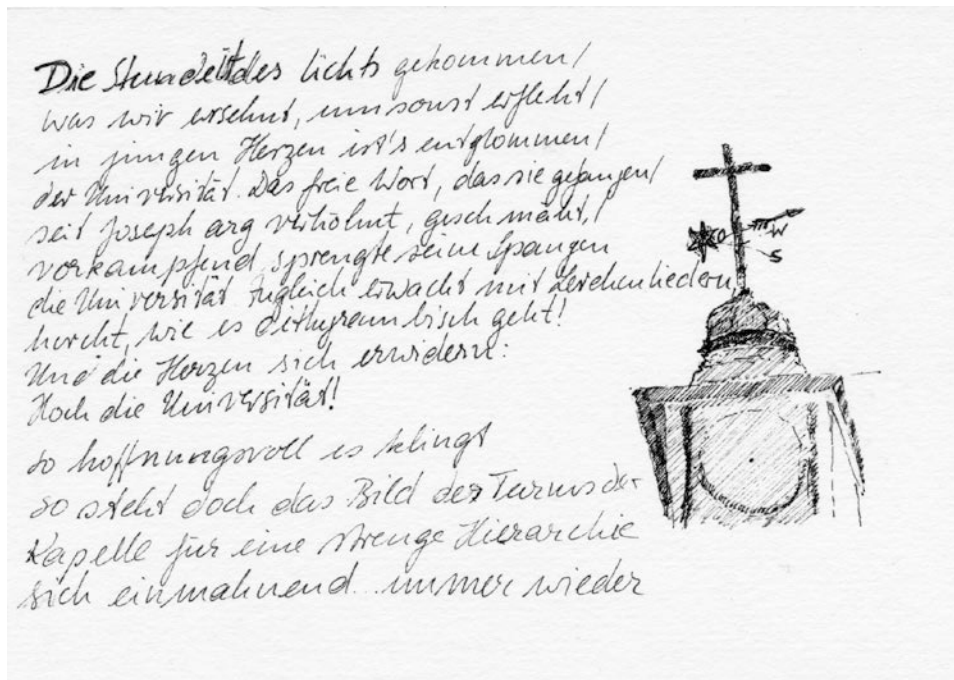 Die Stunde ist des lichts gekommen/
was wir ersehnt, umsonst erfleht/
in jungen Herzen ist's entglommen/
der Universität. Das freie Wort, das sie gefangen/
seit Joseph arg verhöhnt, geschmäht,/
vorkämpfend sprengte seine Spangen
die Universität zugleich erwacht mit Lerchenliedern,
horcht, wie es dithyrambisch geht!
Und die Herzen sich erwidern:
Hoch die Universität!
so hoffnungsvoll es klingt
so steht doch das Bild des Turms der
Kapelle für eine strenge Hierarchie
sich einmahnend immer wieder
W
S